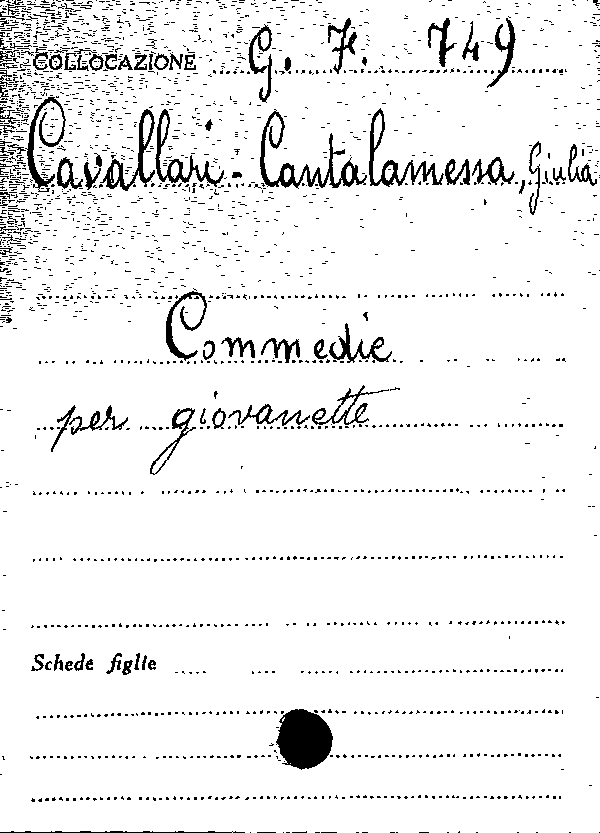 COLLOCAZIONE G. F. 749
Cavallari-Cantalamessa, Giulia
Commedie
per giovanette
Schede figlie